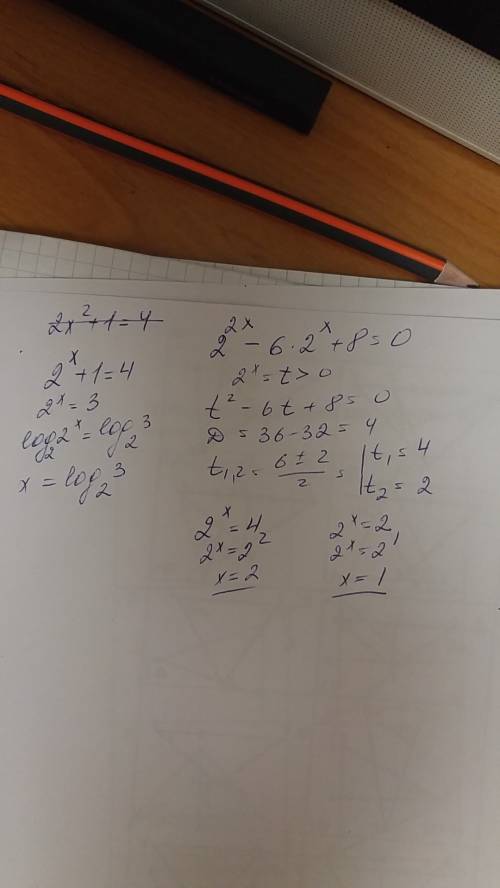 2x² + 1 = 4
2ˣ + 1 = 4
2ˣ = 3
log₂2ˣ = log₂3
x = log₂3
2²ˣ - 6 · 2ˣ + 8 = 0
2ˣ = t > 0
t² - 6t + 8 = 0
D = 36 - 32 = 4
t₁,₂ = (6 ± 2)/2 = | t₁ = 4
t₂ = 2
2ˣ = 4
2ˣ = 2²
x = 2
2ˣ = 2
2ˣ = 2¹
x = 1